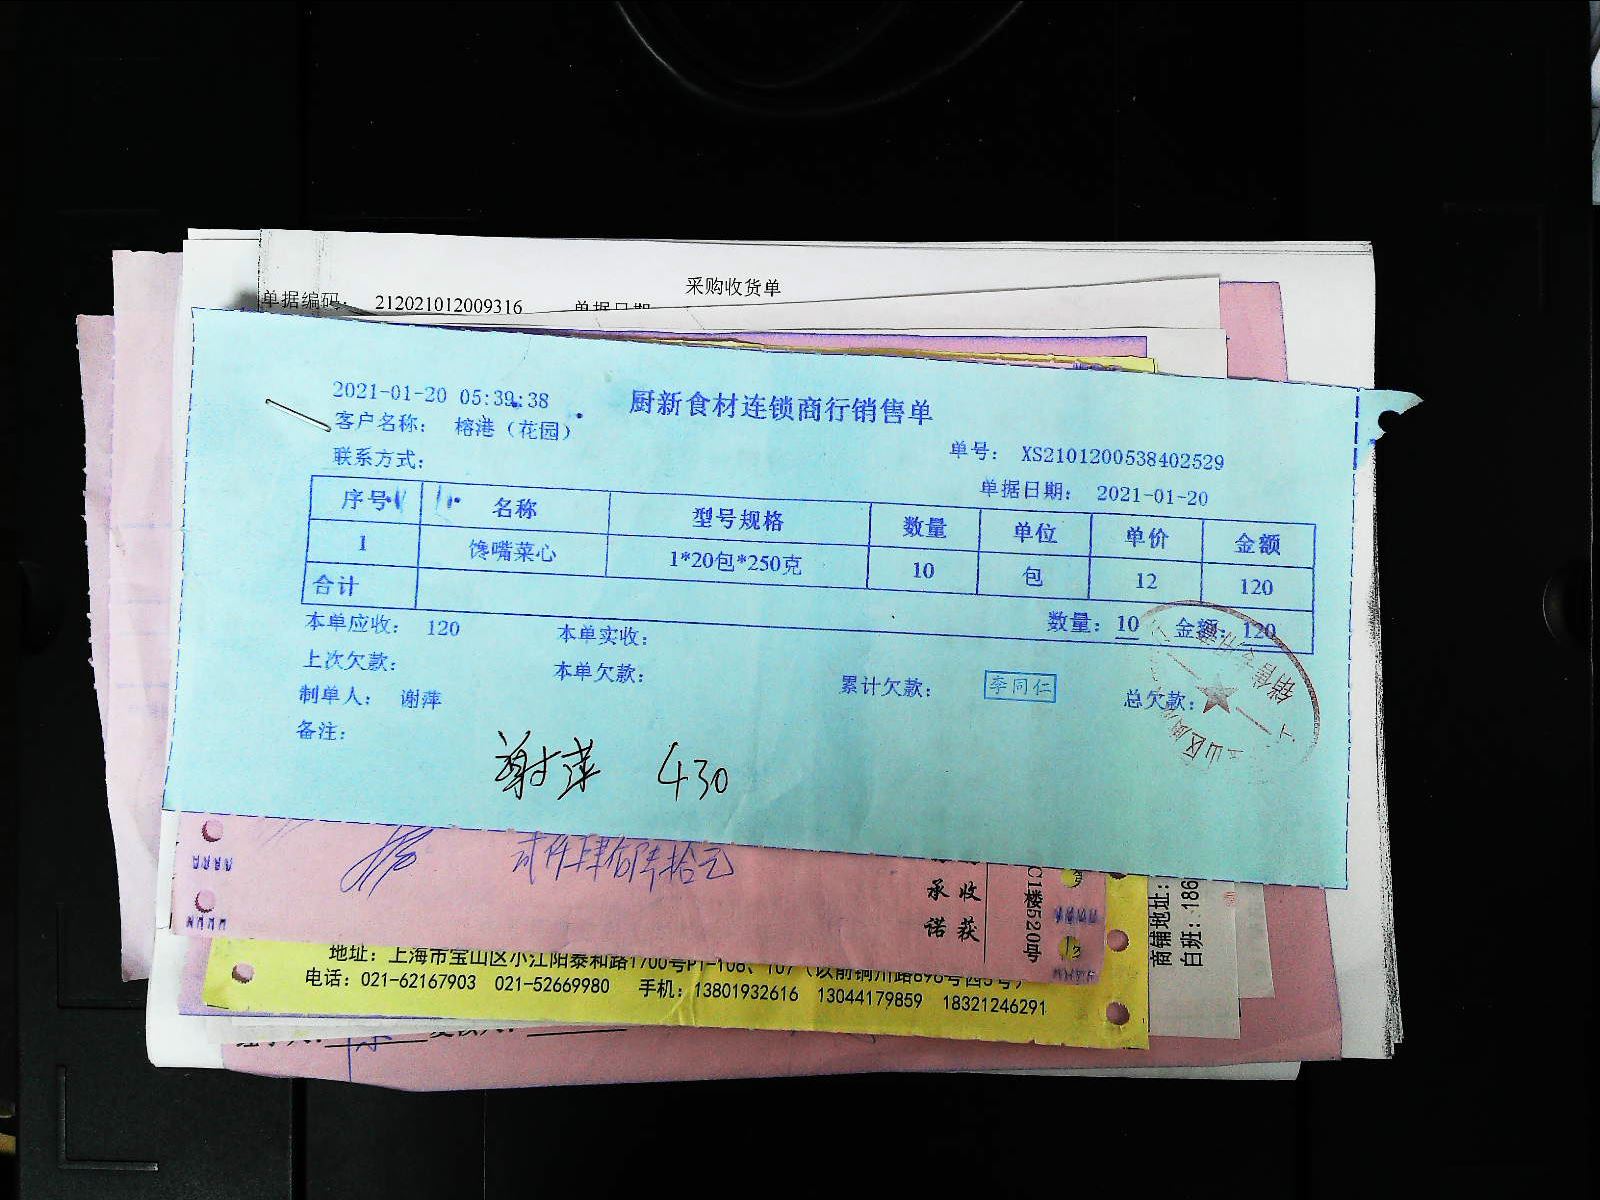 采购收货单
单据编码： 212021012009316 单据日期
2021-01-20 05:39:38 厨新食材连锁商行销售单
客户名称： 榕港（花园）
单号： XS2101200538402529
联系方式：
单据日期： 2021-01-20
序号 名称 型号规格 数量 单位 单价 金额
1 馋嘴菜心 1*20包*250克 10 包 12 120
合计 数量：10 金额：120
本单应收： 120 本单实收：
上次欠款： 本单欠款： 累计欠款： 李同仁 总欠款：
制单人： 谢萍
备注：
谢萍 430
贰仟肆佰陆拾元
承诺
收获
C1楼520号
商铺地址：
白班：186
地址：上海市宝山区小江阳泰和路1700号P1-106、107（以前铜川路896号四
电话：021-62167903 021-52669980 手机：13801932616 13044179859 18321246291